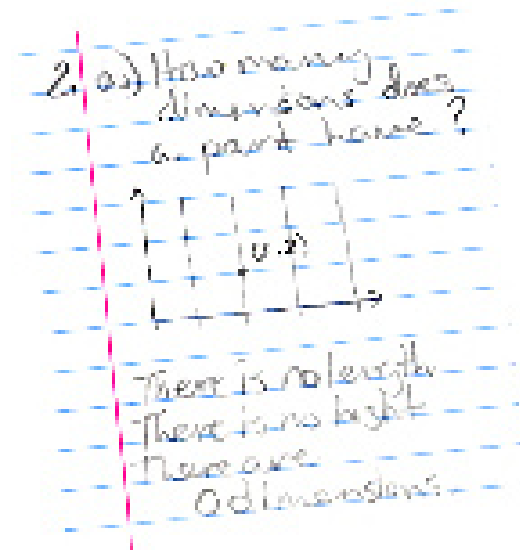 2. a.) How many
dimensions does
a point have?
There is no length
There is no hight
there are
0 dimensions.